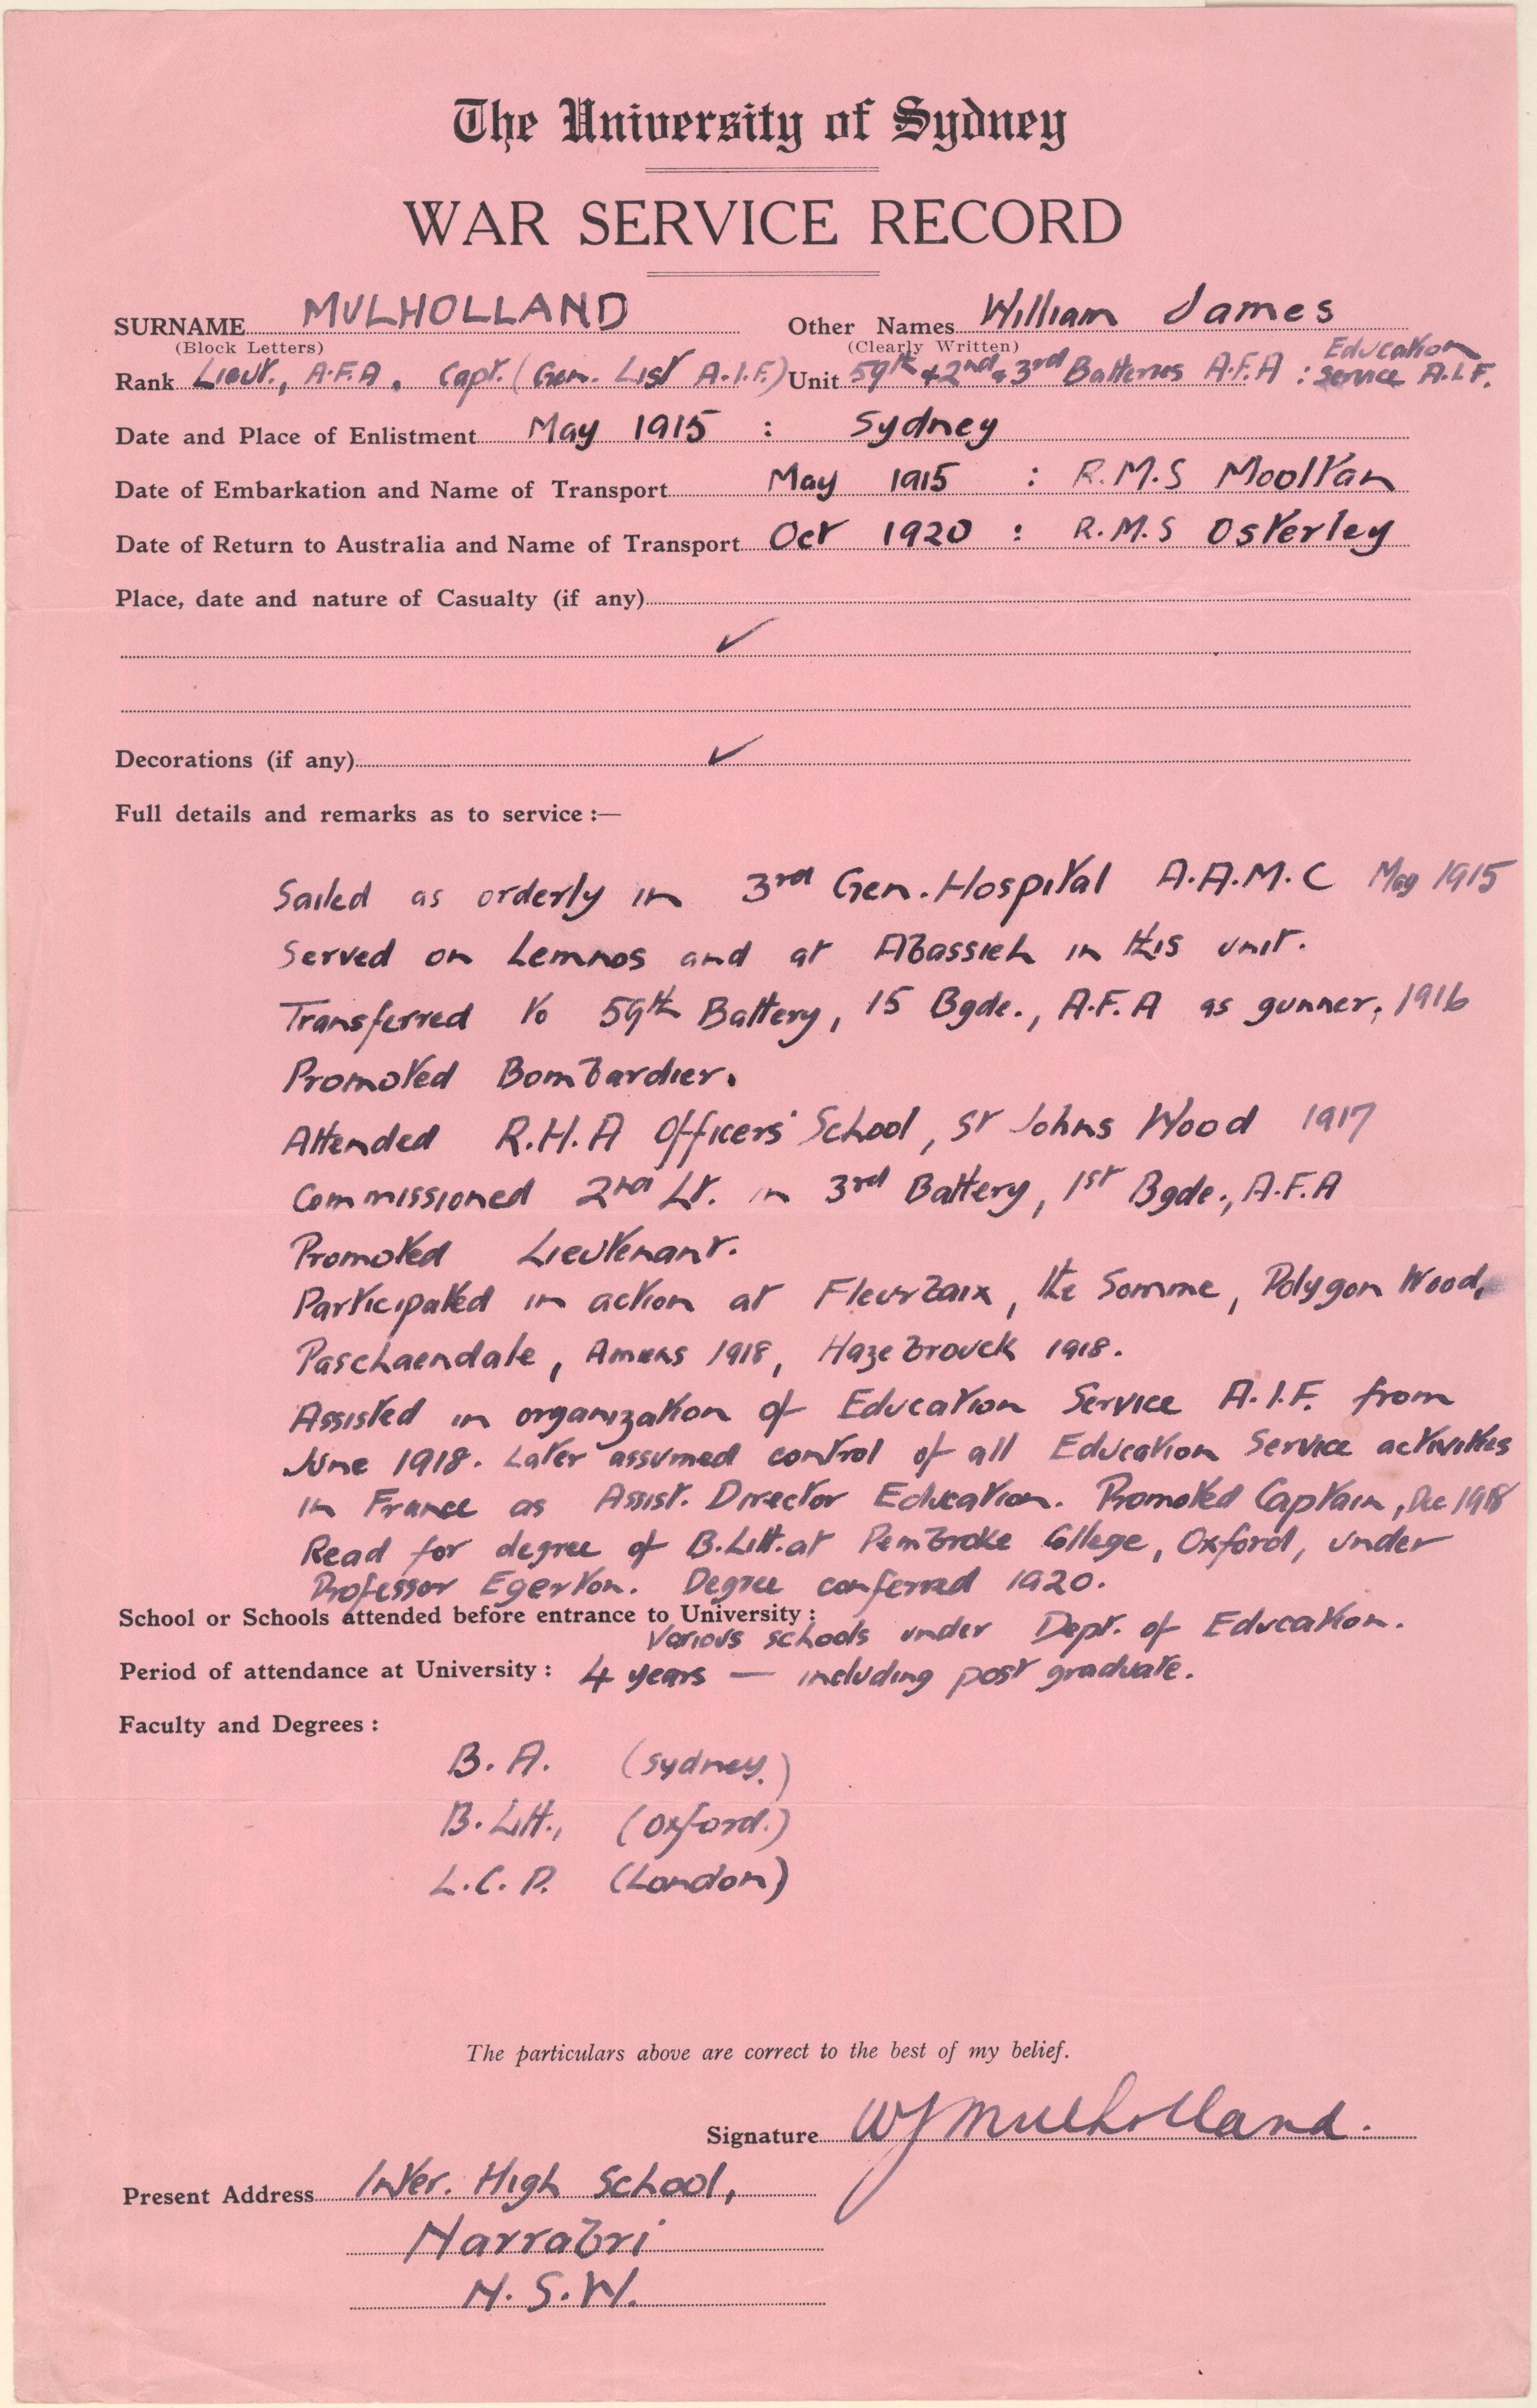 The University of Sydney
WAR SERVICE RECORD
SURNAME MULHOLLAND Other Names William James
(Block Letters) (Clearly Written)
Education
Rank Lieut., A.F.A. Capt. (Gen. List A.I.F.) Unit 59th & 2nd & 3rd Batteries A.F.A : Service A.I.F.
Date and Place of Enlistment May 1915 : Sydney
Date of Embarkation and Name of Transport May 1915 : R.M.S Mooltan
Date of Return to Australia and Name of Transport Oct 1920 : R.M.S Osterley
Place, date and nature of Casualty (if any)
✓
Decorations (if any) ✓
Full details and remarks as to service :—
Sailed as orderly in 3rd Gen. Hospital A.A.M.C May 1915
Served on Lemnos and at Abassieh in this unit.
Transferred to 59th Battery, 15 Bgde., A.F.A as gunner, 1916
Promoted Bombardier.
Attended R.H.A Officers' School, St Johns Wood 1917
Commissioned 2nd Lt. in 3rd Battery, 1st Bgde., A.F.A
Promoted Lieutenant.
Participated in action at Fleurbaix, the Somme, Polygon Wood,
Paschaendale, Amiens 1918, Hazebrouck 1918.
Assisted in organization of Education Service A.I.F. from
June 1918. Later assumed control of all Education Service activities
in France as Assist. Director Education. Promoted Captain, Dec 1918
Read for degree of B.Litt. at Pembroke College, Oxford, under
Professor Egerton. Degree conferred 1920.
School or Schools attended before entrance to University :
Various schools under Dept. of Education.
Period of attendance at University : 4 years — including post graduate.
Faculty and Degrees :
B.A. (Sydney.)
B.Litt., (Oxford.)
L.C.P. (London)
The particulars above are correct to the best of my belief.
Signature WJMulholland.
Present Address Inter. High School,
Narrabri
N.S.W.